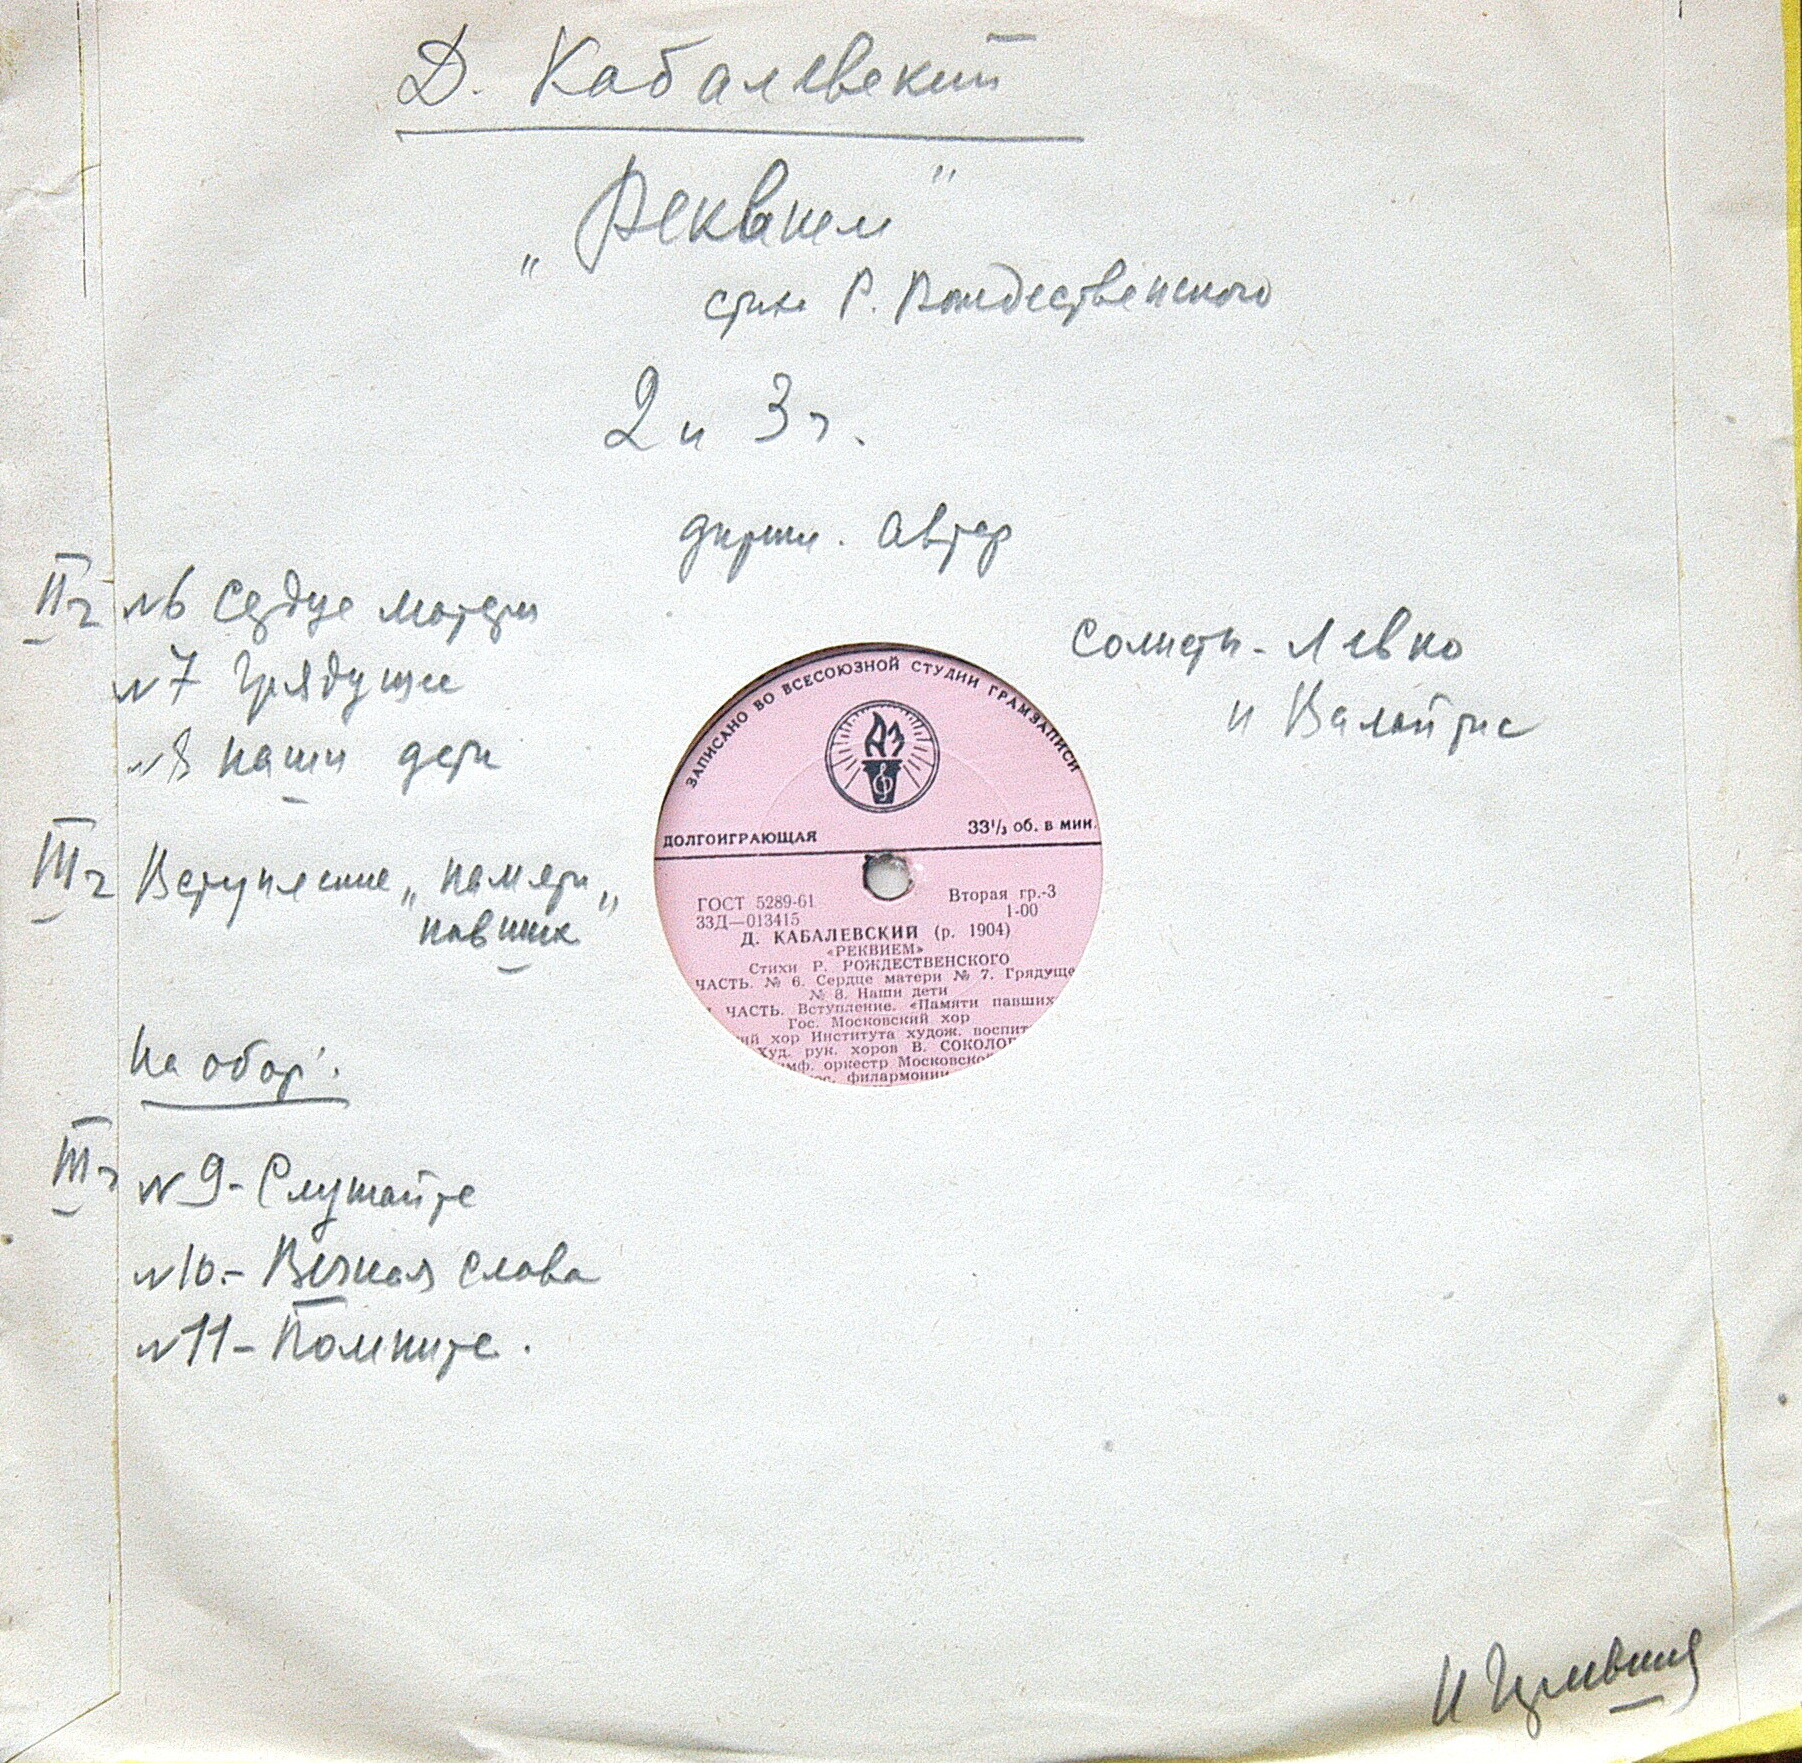 Д. Кабалевский
„Реквием"
стихи Р. Рождественского
2 и 3 ч.
дириж. автор
IIч №6 Сердце матери
№7 Грядущее
№8 Наши дети
Солисты - Левко
и Валайтис
IIIч Вступление „Памяти
павших"
На обор:
IIIч №9 - Слушайте
№10. - Вечная слава
№11 - Помните.
И
ЗАПИСАНО ВО ВСЕСОЮЗНОЙ СТУДИИ ГРАМЗАПИСИ
ДОЛГОИГРАЮЩАЯ 33⅓ об. в мин.
ГОСТ 5289-61 Вторая гр.-3
33Д—013415 1-00
Д. КАБАЛЕВСКИЙ (р. 1904)
«РЕКВИЕМ»
Стихи Р. РОЖДЕСТВЕНСКОГО
ЧАСТЬ. № 6. Сердце матери № 7. Грядуще
№ 8. Наши дети
ЧАСТЬ. Вступление. «Памяти павших
Гос. Московский хор
ий хор Института худож. воспит
Худ. рук. хоров В. СОКОЛОВ
имф. оркестр Московско
ос. филармонии